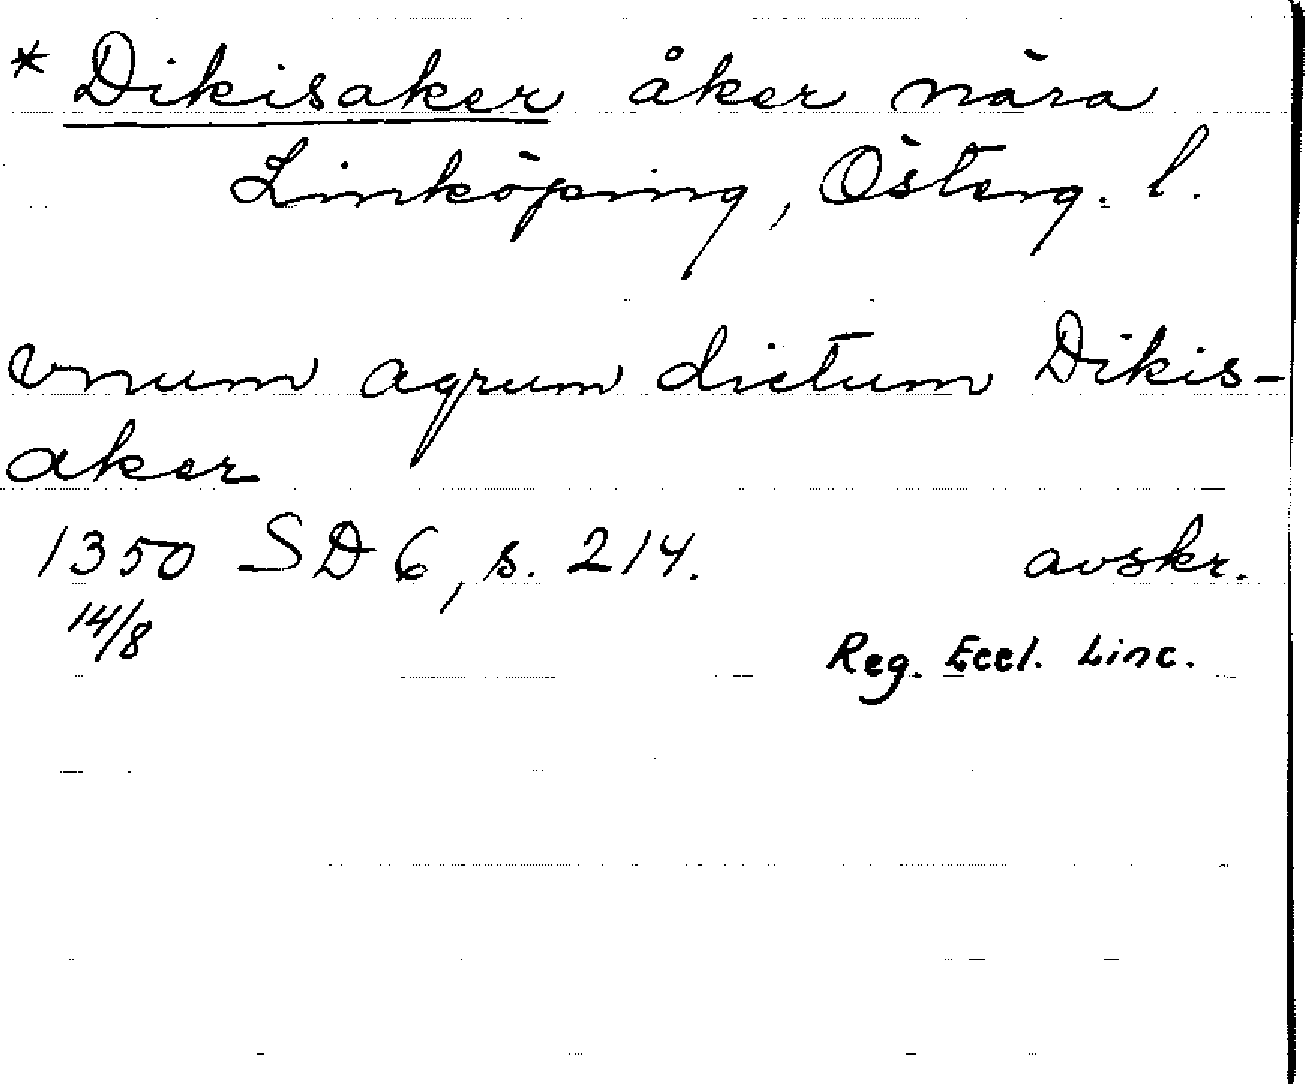 * Dikisaker åker nära
Linköping, Österg. l.
vnum agrum dictum Dikis-
aker
1350 SD 6, s. 214. avskr.
14/8
Reg. Eccl. Linc.